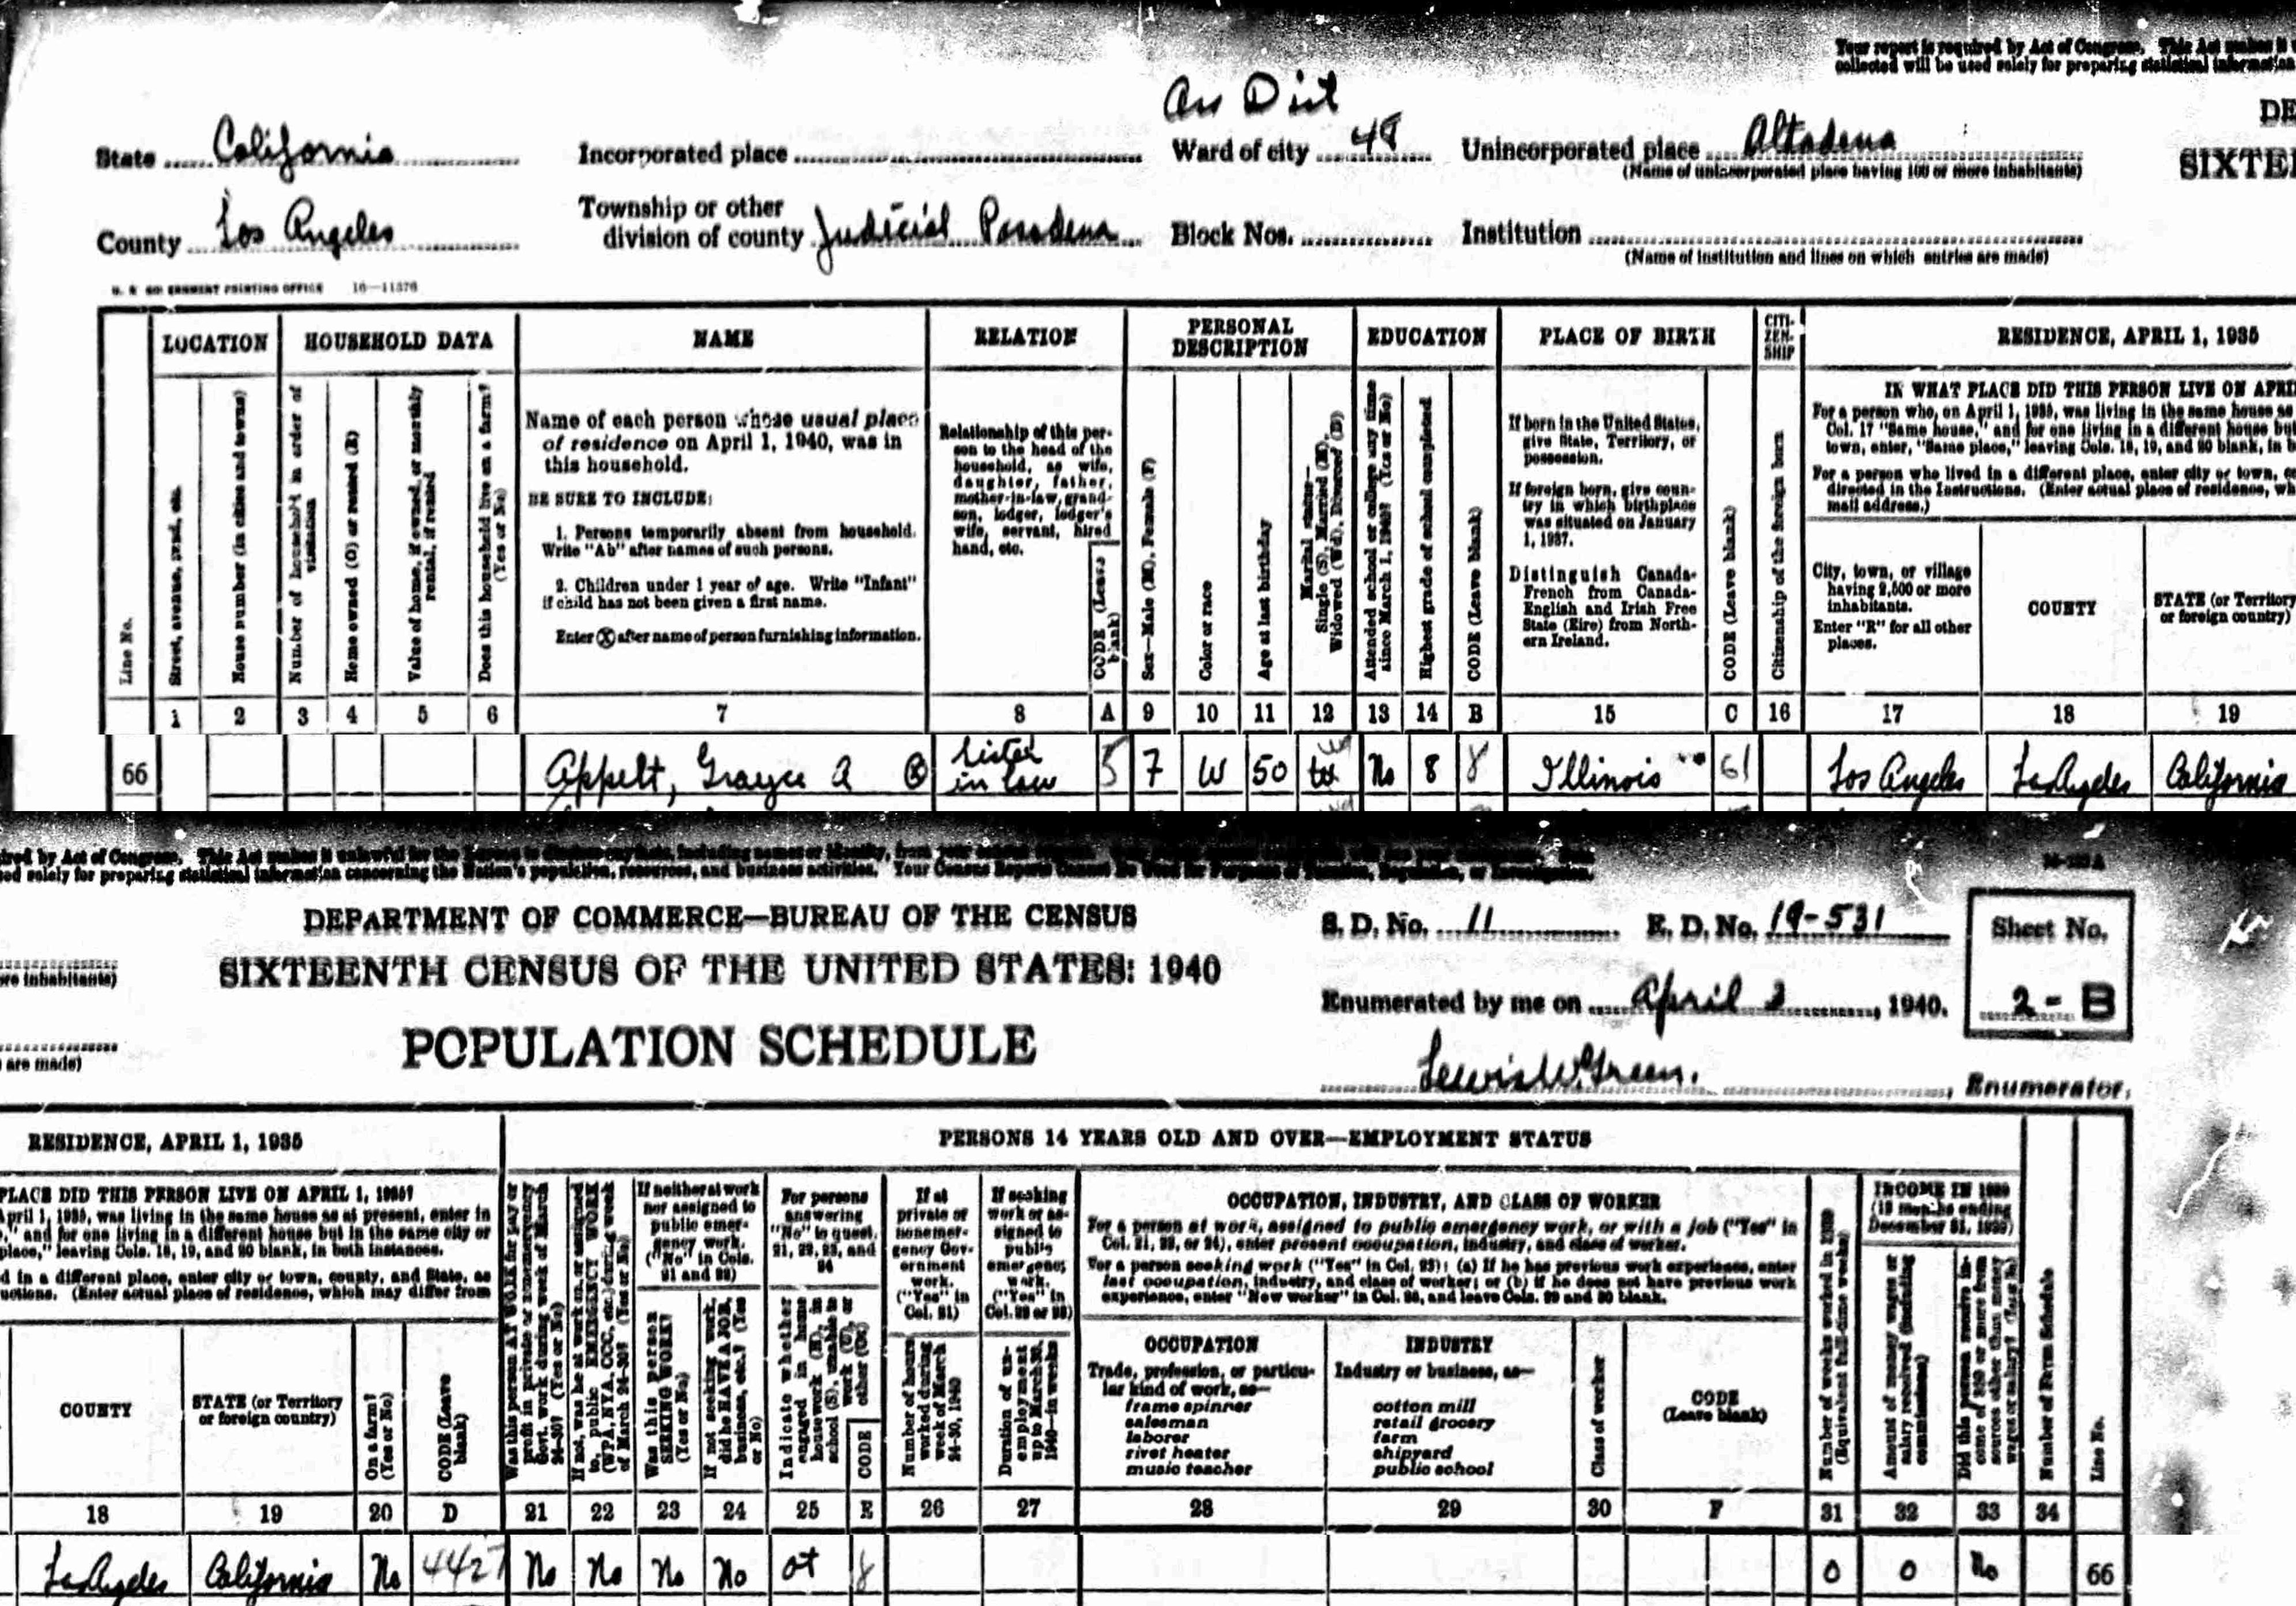 Your report is required by Act of Congress. This Act makes it
collected will be used solely for preparing statistical information
DE
SIXTEE
State California
Incorporated place
Ward of city 48
Unincorporated place Altadena
(Name of unincorporated place having 100 or more inhabitants)
County Los Angeles
Township or other
division of county Judicial Pasadena
Block Nos.
Institution
(Name of institution and lines on which entries are made)
U. S. GOVERNMENT PRINTING OFFICE 16—11376
LOCATION
HOUSEHOLD DATA
NAME
RELATION
PERSONAL
DESCRIPTION
EDUCATION
PLACE OF BIRTH
CITI-
ZEN-
SHIP
RESIDENCE, APRIL 1, 1935
Line No.
Street, avenue, road, etc.
House number (in cities and towns)
Number of household in order of
visitation
Home owned (O) or rented (R)
Value of home, if owned, or monthly
rental, if rented
Does this household live on a farm?
(Yes or No)
Name of each person whose usual place
of residence on April 1, 1940, was in
this household.
BE SURE TO INCLUDE:
1. Persons temporarily absent from household.
Write "Ab" after names of such persons.
2. Children under 1 year of age. Write "Infant"
if child has not been given a first name.
Enter Ⓧ after name of person furnishing information.
Relationship of this per-
son to the head of the
household, as wife,
daughter, father,
mother-in-law, grand-
son, lodger, lodger's
wife, servant, hired
hand, etc.
CODE (Leave
blank)
Sex—Male (M), Female (F)
Color or race
Age at last birthday
Marital status—
Single (S), Married (M),
Widowed (Wd), Divorced (D)
Attended school or college any time
since March 1, 1940? (Yes or No)
Highest grade of school completed
CODE (Leave blank)
If born in the United States,
give State, Territory, or
possession.
If foreign born, give coun-
try in which birthplace
was situated on January
1, 1937.
Distinguish Canada-
French from Canada-
English and Irish Free
State (Eire) from North-
ern Ireland.
CODE (Leave blank)
Citizenship of the foreign born
IN WHAT PLACE DID THIS PERSON LIVE ON APRI
For a person who, on April 1, 1935, was living in the same house as
Col. 17 "Same house," and for one living in a different house but
town, enter, "Same place," leaving Cols. 18, 19, and 20 blank, in b
For a person who lived in a different place, enter city or town, co
directed in the Instructions. (Enter actual place of residence, wh
mail address.)
City, town, or village
having 2,500 or more
inhabitants.
Enter "R" for all other
places.
COUNTY
STATE (or Territory
or foreign country)
1 2 3 4 5 6 7 8 A 9 10 11 12 13 14 B 15 C 16 17 18 19
66 Appelt, Grayce A Ⓧ sister in law 5 F W 50 No 8 8 Illinois 61 Los Angeles Los Angeles California
ired by Act of Congress. This Act makes it unlawful for the
ed solely for preparing statistical information concerning the Nation's population, resources, and business activities. Your Census Reports Cannot Be Used for Purposes of Taxation, Regulation, or Investigation.
DEPARTMENT OF COMMERCE—BUREAU OF THE CENSUS
SIXTEENTH CENSUS OF THE UNITED STATES: 1940
POPULATION SCHEDULE
S. D. No. 11
E. D. No. 19-531
Sheet No.
2-B
Enumerated by me on April 2, 1940.
Lewis W. Green., Enumerator.
re inhabitants)
are made)
RESIDENCE, APRIL 1, 1935
PERSONS 14 YEARS OLD AND OVER—EMPLOYMENT STATUS
PLACE DID THIS PERSON LIVE ON APRIL 1, 1935?
April 1, 1935, was living in the same house as at present, enter in
," and for one living in a different house but in the same city or
place," leaving Cols. 18, 19, and 20 blank, in both instances.
d in a different place, enter city or town, county, and State, as
uctions. (Enter actual place of residence, which may differ from
COUNTY
STATE (or Territory
or foreign country)
On a farm?
(Yes or No)
CODE (Leave
blank)
Was this person AT WORK for pay or
profit in private or nonemergency
Govt. work during week of March
24-30? (Yes or No)
If not, was he at work on, or assigned
to, public EMERGENCY WORK
(WPA, NYA, CCC, etc.) during week
of March 24-30? (Yes or No)
If neither at work
nor assigned to
public emer-
gency work.
("No" in Cols.
21 and 22)
Was this person
SEEKING WORK?
(Yes or No)
If not seeking work,
did he HAVE A JOB,
business, etc.? (Yes
or No)
For persons
answering
"No" to quest.
21, 22, 23, and
24
Indicate whether
engaged in home
housework (H), in
school (S), unable to
work (U), or
other (Ot)
CODE
If at
private or
nonemer-
gency Gov-
ernment
work.
("Yes" in
Col. 21)
Number of hours
worked during
week of March
24-30, 1940
If seeking
work or as-
signed to
public
emergency
work.
("Yes" in
Col. 22 or 23)
Duration of un-
employment
up to March 30,
1940—in weeks
OCCUPATION, INDUSTRY, AND CLASS OF WORKER
For a person at work, assigned to public emergency work, or with a job ("Yes" in
Col. 21, 22, or 24), enter present occupation, industry, and class of worker.
For a person seeking work ("Yes" in Col. 23): (a) If he has previous work experience, enter
last occupation, industry, and class of worker; or (b) if he does not have previous work
experience, enter "New worker" in Col. 28, and leave Cols. 29 and 30 blank.
OCCUPATION
Trade, profession, or particu-
lar kind of work, as—
frame spinner
salesman
laborer
rivet heater
music teacher
INDUSTRY
Industry or business, as—
cotton mill
retail grocery
farm
shipyard
public school
Class of worker
CODE
(Leave blank)
Number of weeks worked in 1939
(Equivalent full-time weeks)
INCOME IN 1939
(12 months ending
December 31, 1939)
Amount of money wages or
salary received (including
commissions)
Did this person receive in-
come of $50 or more from
sources other than money
wages or salary? (Yes or No)
Number of Farm Schedule
Line No.
18 19 20 D 21 22 23 24 25 E 26 27 28 29 30 F 31 32 33 34
Los Angeles California No 4427 No No No No ot 8 0 0 No 66